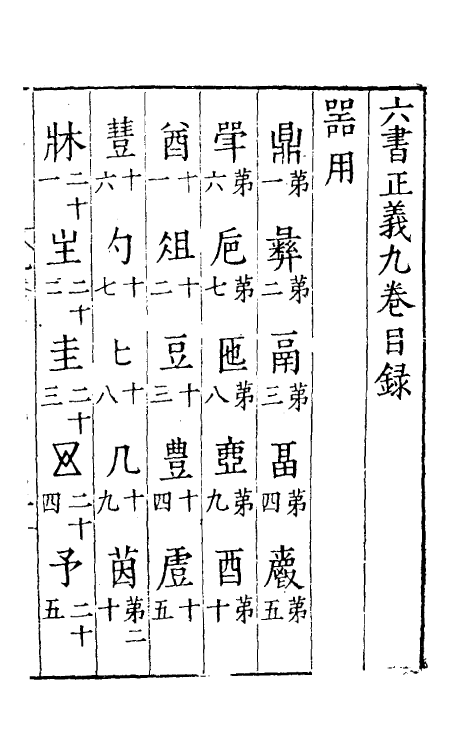 六書正義九卷目錄
器用
鼎第一 彝第二 鬲第三 畐第四 甗第五
斝第六 巵第七 匜第八 壺第九 酉第十
酋十一 俎十二 豆十三 豊十四 虘十五
十六 勺十七 匕十八 几十九 茵第二十
牀二十一 㞷二十二 圭二十三 二十四 予二十五